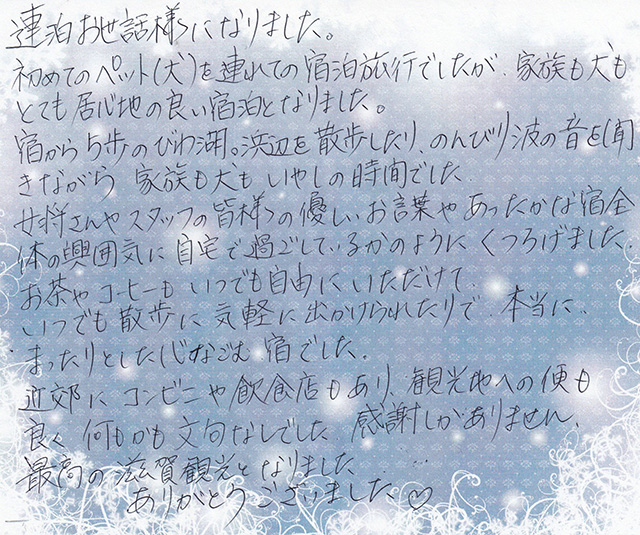 連泊お世話様になりました。
初めてのペット(犬)を連れての宿泊旅行でしたが、家族も犬も
とても居心地の良い宿泊となりました。
宿から5歩のびわ湖。浜辺を散歩したり、のんびり波の音を聞
きながら 家族も犬も いやしの時間でした。
女将さんやスタッフの皆様の優しいお言葉や あったかな宿全
体の雰囲気に 自宅で過ごしているかのように くつろげました。
お茶やコーヒーも いつでも自由に いただけて、
いつでも散歩に 気軽に 出かけられたりで、本当に、
まったりとした心なごむ 宿でした。
近郊に コンビニや 飲食店もあり、観光地への便も
良く 何もかも 文句なしでした。感謝しかありません。
最高の滋賀観光となりました……
ありがとうございました♡